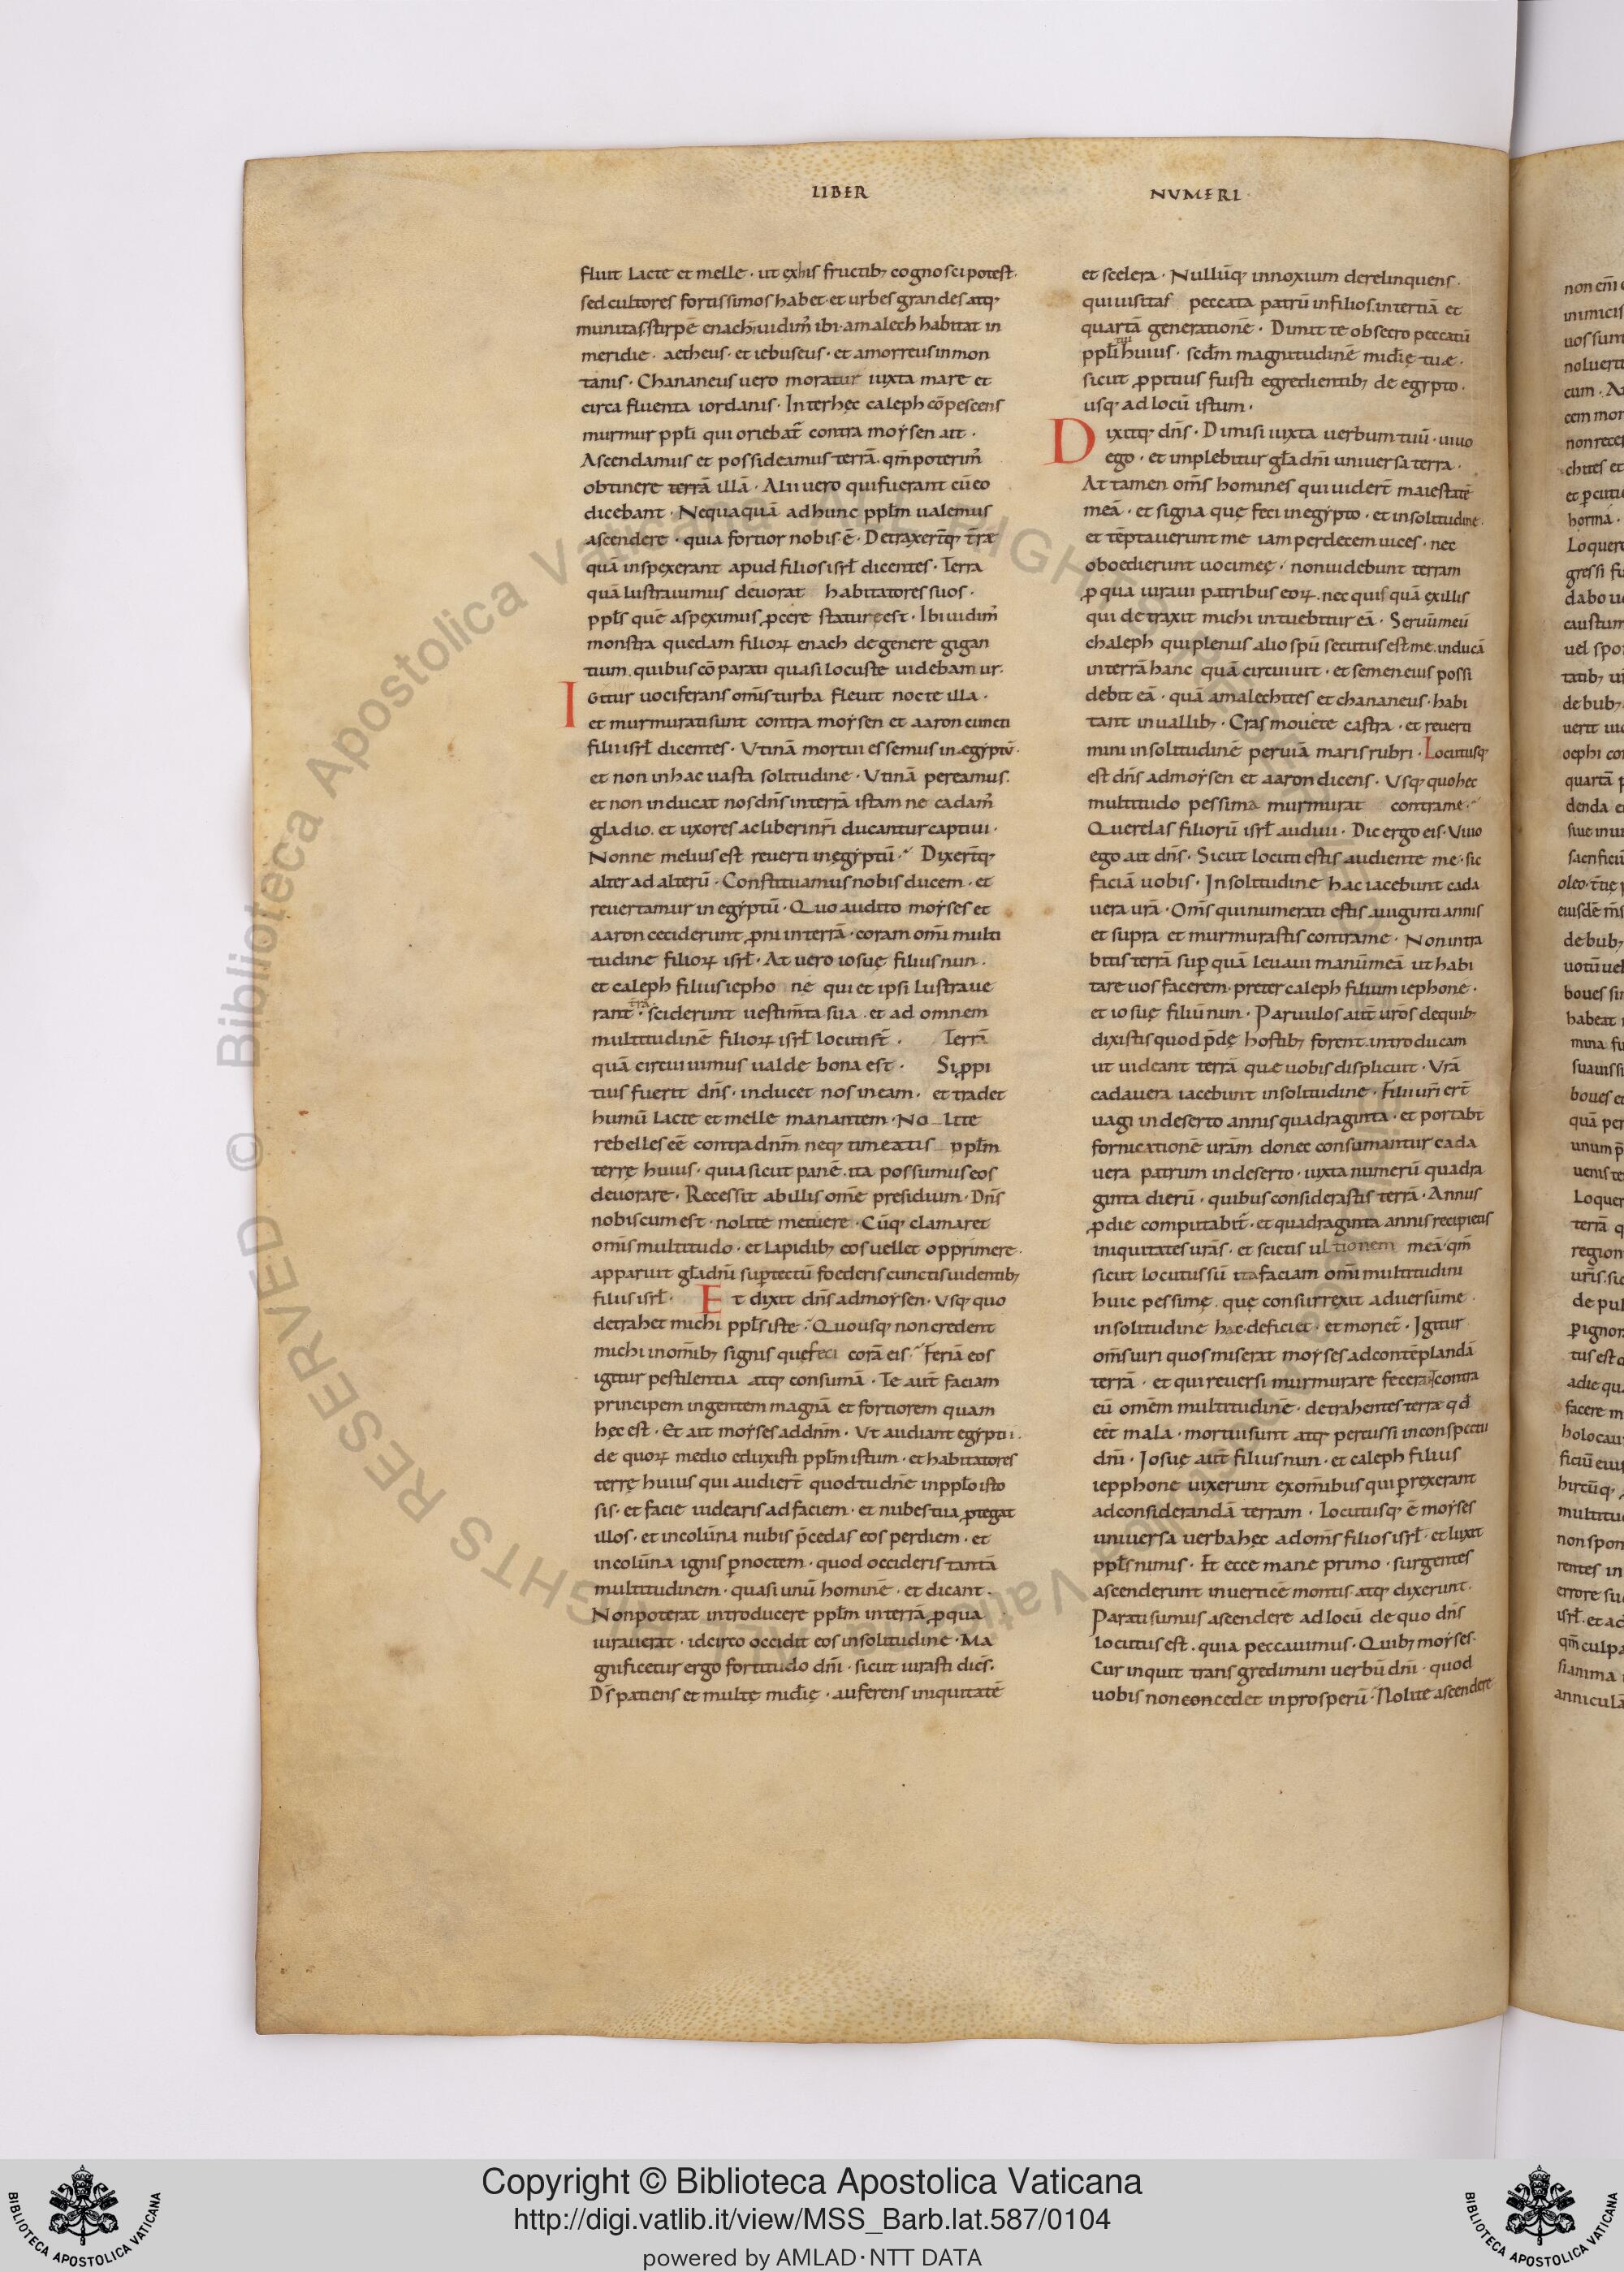 LIBER NVMERI
fluit lacte et melle · ut exhis fructib; cognosci potest ·
sed cultores fortissimos habet · et urbes grandes atq;
munitas · stirpē enach uidim̄ ibi · amalech habitat in
meridie · aetheus · et iebuseus · et amorreus in mon
tanis · Chananeus uero moratur iuxta mare et
circa fluenta iordanis · Inter hęc caleph cōpescens
murmur ppl̄i qui oriebat̄ contra moẏsen ait ·
Ascendamus et possideamus terrā · qm̄ poterim̄
obtinere terrā illā · Alii uero qui fuerant cū eo
dicebant · Nequaquā ad hunc ppl̄m ualemus
ascendere · quia fortior nobis ē · Detraxert̄q; t̄rae
quā inspexerant apud filios isrl̄ dicentes · Terra
quā lustrauimus deuorat habitatores suos ·
ppl̄s quē aspeximus ꝓcere staturę est · Ibi uidim̄
monstra quedam filioꝝ enach de genere gigan
tium · quibus cōparati quasi locuste uidebamur ·
Igitur uociferans om̄is turba fleuit nocte illa ·
et murmurati sunt contra moẏsen et aaron cuncti
filii isrl̄ dicentes · Utinā mortui essemus in ęgẏptū ·
et non in hac uasta solitudine · Utinā pereamus ·
et non inducat nos dn̄s in terrā istam ne cadam̄
gladio · et uxores ac liberi nr̄i ducantur captiui ·
Nonne melius est reuerti in egẏptū · Dixert̄q;
alter ad alterū · Constituamus nobis ducem · et
reuertamur in egẏptū · Quo audito moẏses et
aaron ceciderunt ꝓni in terrā · coram om̄i multi
tudine filioꝝ isrl̄ · At uero iosuę filius nun ·
et caleph filius iepho ne qui et ipsi lustraue
rant t̄rā · sciderunt uestim̄ta sua · et ad omnem
multitudinē filioꝝ isrl̄ locuti st̄ · Terrā
quā circuiuimus ualde bona est · Si ꝓpi
tius fuerit dn̄s · inducet nos in eam · et tradet
humū lacte et melle manantem · No lite
rebelles eē contra dnm̄ neq; timeatis ppl̄m
terrę huius · quia sicut panē · ita possumus eos
deuorare · Recessit ab illis om̄e presidium · Dn̄s
nobiscum est · nolite metuere · Cūq; clamaret
om̄is multitudo · et lapidib; eos uellet opprimere ·
apparuit gl̄a dn̄i sup tectū foederis cunctis uidentib;
filiis isrl̄ · Et dixit dn̄s ad moẏsen · Usq; quo
detrahet michi ppl̄s iste · Quousq; non credent
michi in om̄ib; signis quę feci corā eis · Feriā eos
igitur pestilentia atq; consumā · Te aut̄ faciam
principem in gentem magnā et fortiorem quam
hęc est · Et ait moẏses ad dnm̄ · Ut audiant egẏptii ·
de quoꝝ medio eduxisti ppl̄m istum · et habitatores
terrę huius qui audiert̄ quod tu dn̄e in ppl̄o isto
sis · et facie uidearis ad faciem · et nubes tua ꝓtegat
illos · et in colūna nubis p̄cedas eos per diem · et
in colūna ignis ꝑ noctem · quod occideris tantā
multitudinem · quasi unū hominē · et dicant ·
Non poterat introducere ppl̄m in terrā ꝓ qua
iurauerat · idcirco occidit eos in solitudine · Ma
gnificetur ergo fortitudo dn̄i · sicut iurasti dicēs ·
Dn̄s patiens et multę mīdię · auferens iniquitatē
et scelera · Nullūq; innoxium derelinquens ·
qui uisitas peccata patrū in filios · in tertiā et
quartā generationē · Dimit te obsecro peccatū
ppl̄i tui huius · scd̄m magnitudinē mīdię tuę ·
sicut ꝓpitius fuisti egredientib; de egypto ·
usq; ad locū istum ·
Dixitq; dn̄s · Dimisi iuxta uerbum tuū · uiuo
ego · et implebitur gl̄a dn̄i uniuersa terra ·
Attamen om̄s homines qui uidert̄ maiestatē
meā · et signa quę feci in egẏpto · et in solitudine ·
et tēptauerunt me iam per decem uices · nec
oboedierunt uoci meę · non uidebunt terram
ꝓ qua iuraui patribus eoꝝ · nec quisquā ex illis
qui detraxit michi intuebitur eā · Seruū meū
chaleph qui plenus alio spū secutus est me · inducā
in terrā hanc quā circuiuit · et semen eius possi
debit eā · quā amalechites et chananeus · habi
tant in uallib; · Cras mouete castra · et reuerti
mini in solitudinē per uiā maris rubri · Locutusq;
est dn̄s ad moẏsen et aaron dicens · Usq; quo hec
multitudo pessima murmurat contra me ·
Querelas filiorū isrl̄ audiui · Dic ergo eis · Uiuo
ego ait dn̄s · Sicut locuti estis audiente me · sic
faciā uobis · In solitudine hac iacebunt cada
uera ur̄a · Om̄s qui numerati estis a uiginti annis
et supra et murmurastis contra me · Non intra
bitis terrā sup quā leuaui manū meā ut habi
tare uos facerem · preter caleph filium iephone ·
et iosuę filiū nun · Paruulos aut̄ ur̄os de quib;
dixistis quod p̄dę hostib; forent · introducam
ut uideant terrā quę uobis displicuit · Ur̄ā
cadauera iacebunt in solitudine · Filii ur̄i ert̄
uagi in deserto annis quadraginta · et portabt̄
fornicationē ur̄am donec consumantur cada
uera patrum in deserto · iuxta numerū quadra
ginta dierū · quibus considerastis terrā · Annus
ꝓ die computabit̄ · et quadraginta annis recipietis
iniquitates ur̄as · et scietis ultionem meā · qm̄
sicut locutus sū ita faciam om̄i multitudini
huic pessimę · quę consurrexit aduersū me ·
in solitudine hac deficiet · et moriet̄ · Igitur
om̄s uiri quos miserat moẏses ad contēplandā
terrā · et qui reuersi murmurare fecerant contra
eū omēm multitudinē · detrahentes terrae qd̄
eēt mala · mortui sunt atq; percussi in conspectu
dn̄i · Iosuę aut̄ filius nun · et caleph filius
iepphone uixerunt ex om̄ibus qui prexerant
ad considerandā terram · Locutusq; ē moẏses
uniuersa uerba hęc ad om̄s filios isrl̄ · et luxit
ppl̄s nimis · Et ecce mane primo · surgentes
ascenderunt in uerticē montis atq; dixerunt ·
Parati sumus ascendere ad locū de quo dn̄s
locutus est · quia peccauimus · Quib; moẏses ·
Cur inquit transgredimini uerbū dn̄i · quod
uobis non concedet in prosperū · Nolite ascendere
© Biblioteca Apostolica Vaticana ALL RIGHTS RESERVED
Copyright © Biblioteca Apostolica Vaticana
http://digi.vatlib.it/view/MSS_Barb.lat.587/0104
powered by AMLAD·NTT DATA
BIBLIOTECA APOSTOLICA VATICANA
BIBLIOTECA APOSTOLICA VATICANA